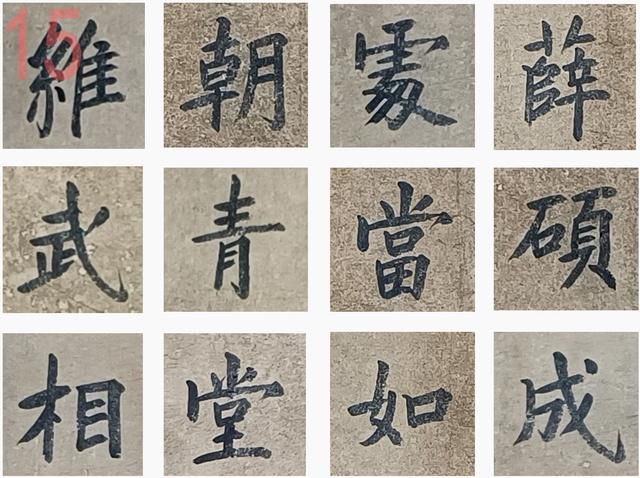 15
維 朝 薛
武 青 當 碩
相 堂 如 成